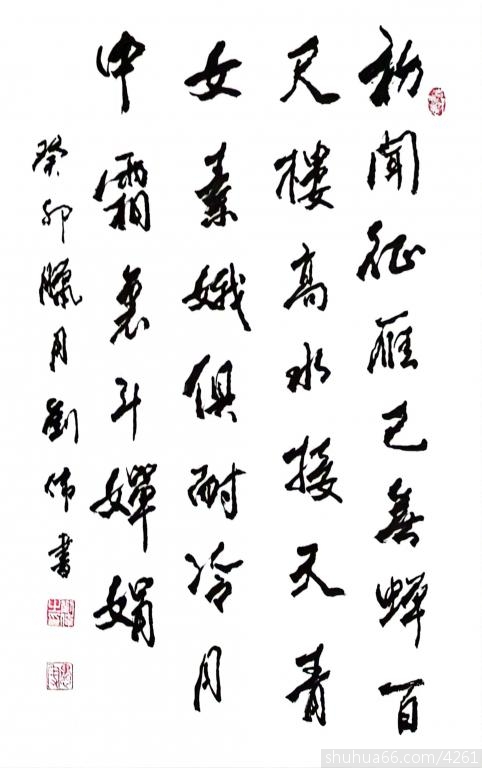 初聞征雁已無蟬百
尺樓高水接天青
女素娥俱耐冷月
中霜裏斗嬋娟
癸卯臘月劉偉書
shuhua66.com/4261